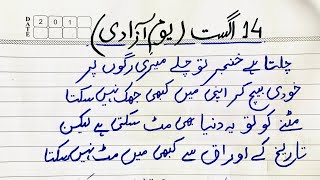 DATE 2 0 1
14 اگست (یومِ آزادی)
چلتا ہے خنجر تو چلے میری رگوں پر
خودی بیچ کر اپنی میں کبھی جھک نہیں سکتا
مٹنے کو تو یہ دنیا بھی مٹ سکتی ہے لیکن
تاریخ کے اوراق سے کبھی میں مٹ نہیں سکتا